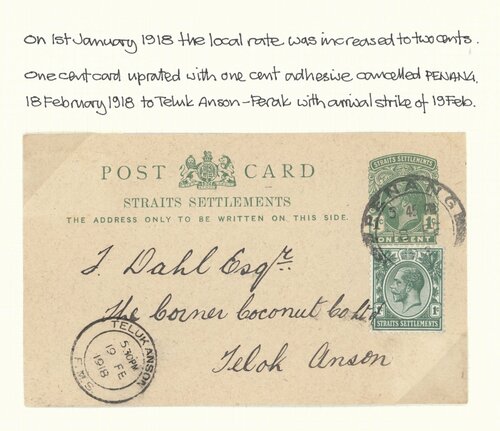 On 1st January 1918 the local rate was increased to two cents.
One cent card uprated with one cent adhesive cancelled PENANG,
18 February 1918 to Teluk Anson - Perak with arrival strike of 19 Feb.
POST CARD
STRAITS SETTLEMENTS
THE ADDRESS ONLY TO BE WRITTEN ON THIS SIDE.
STRAITS SETTLEMENTS
1c
ONE CENT
PENANG
1c 1c
STRAITS SETTLEMENTS
J. Dahl Esqr.
The Corner Coconut
Telok Anson
TELUK ANSON
5.30PM
19 FE
1918